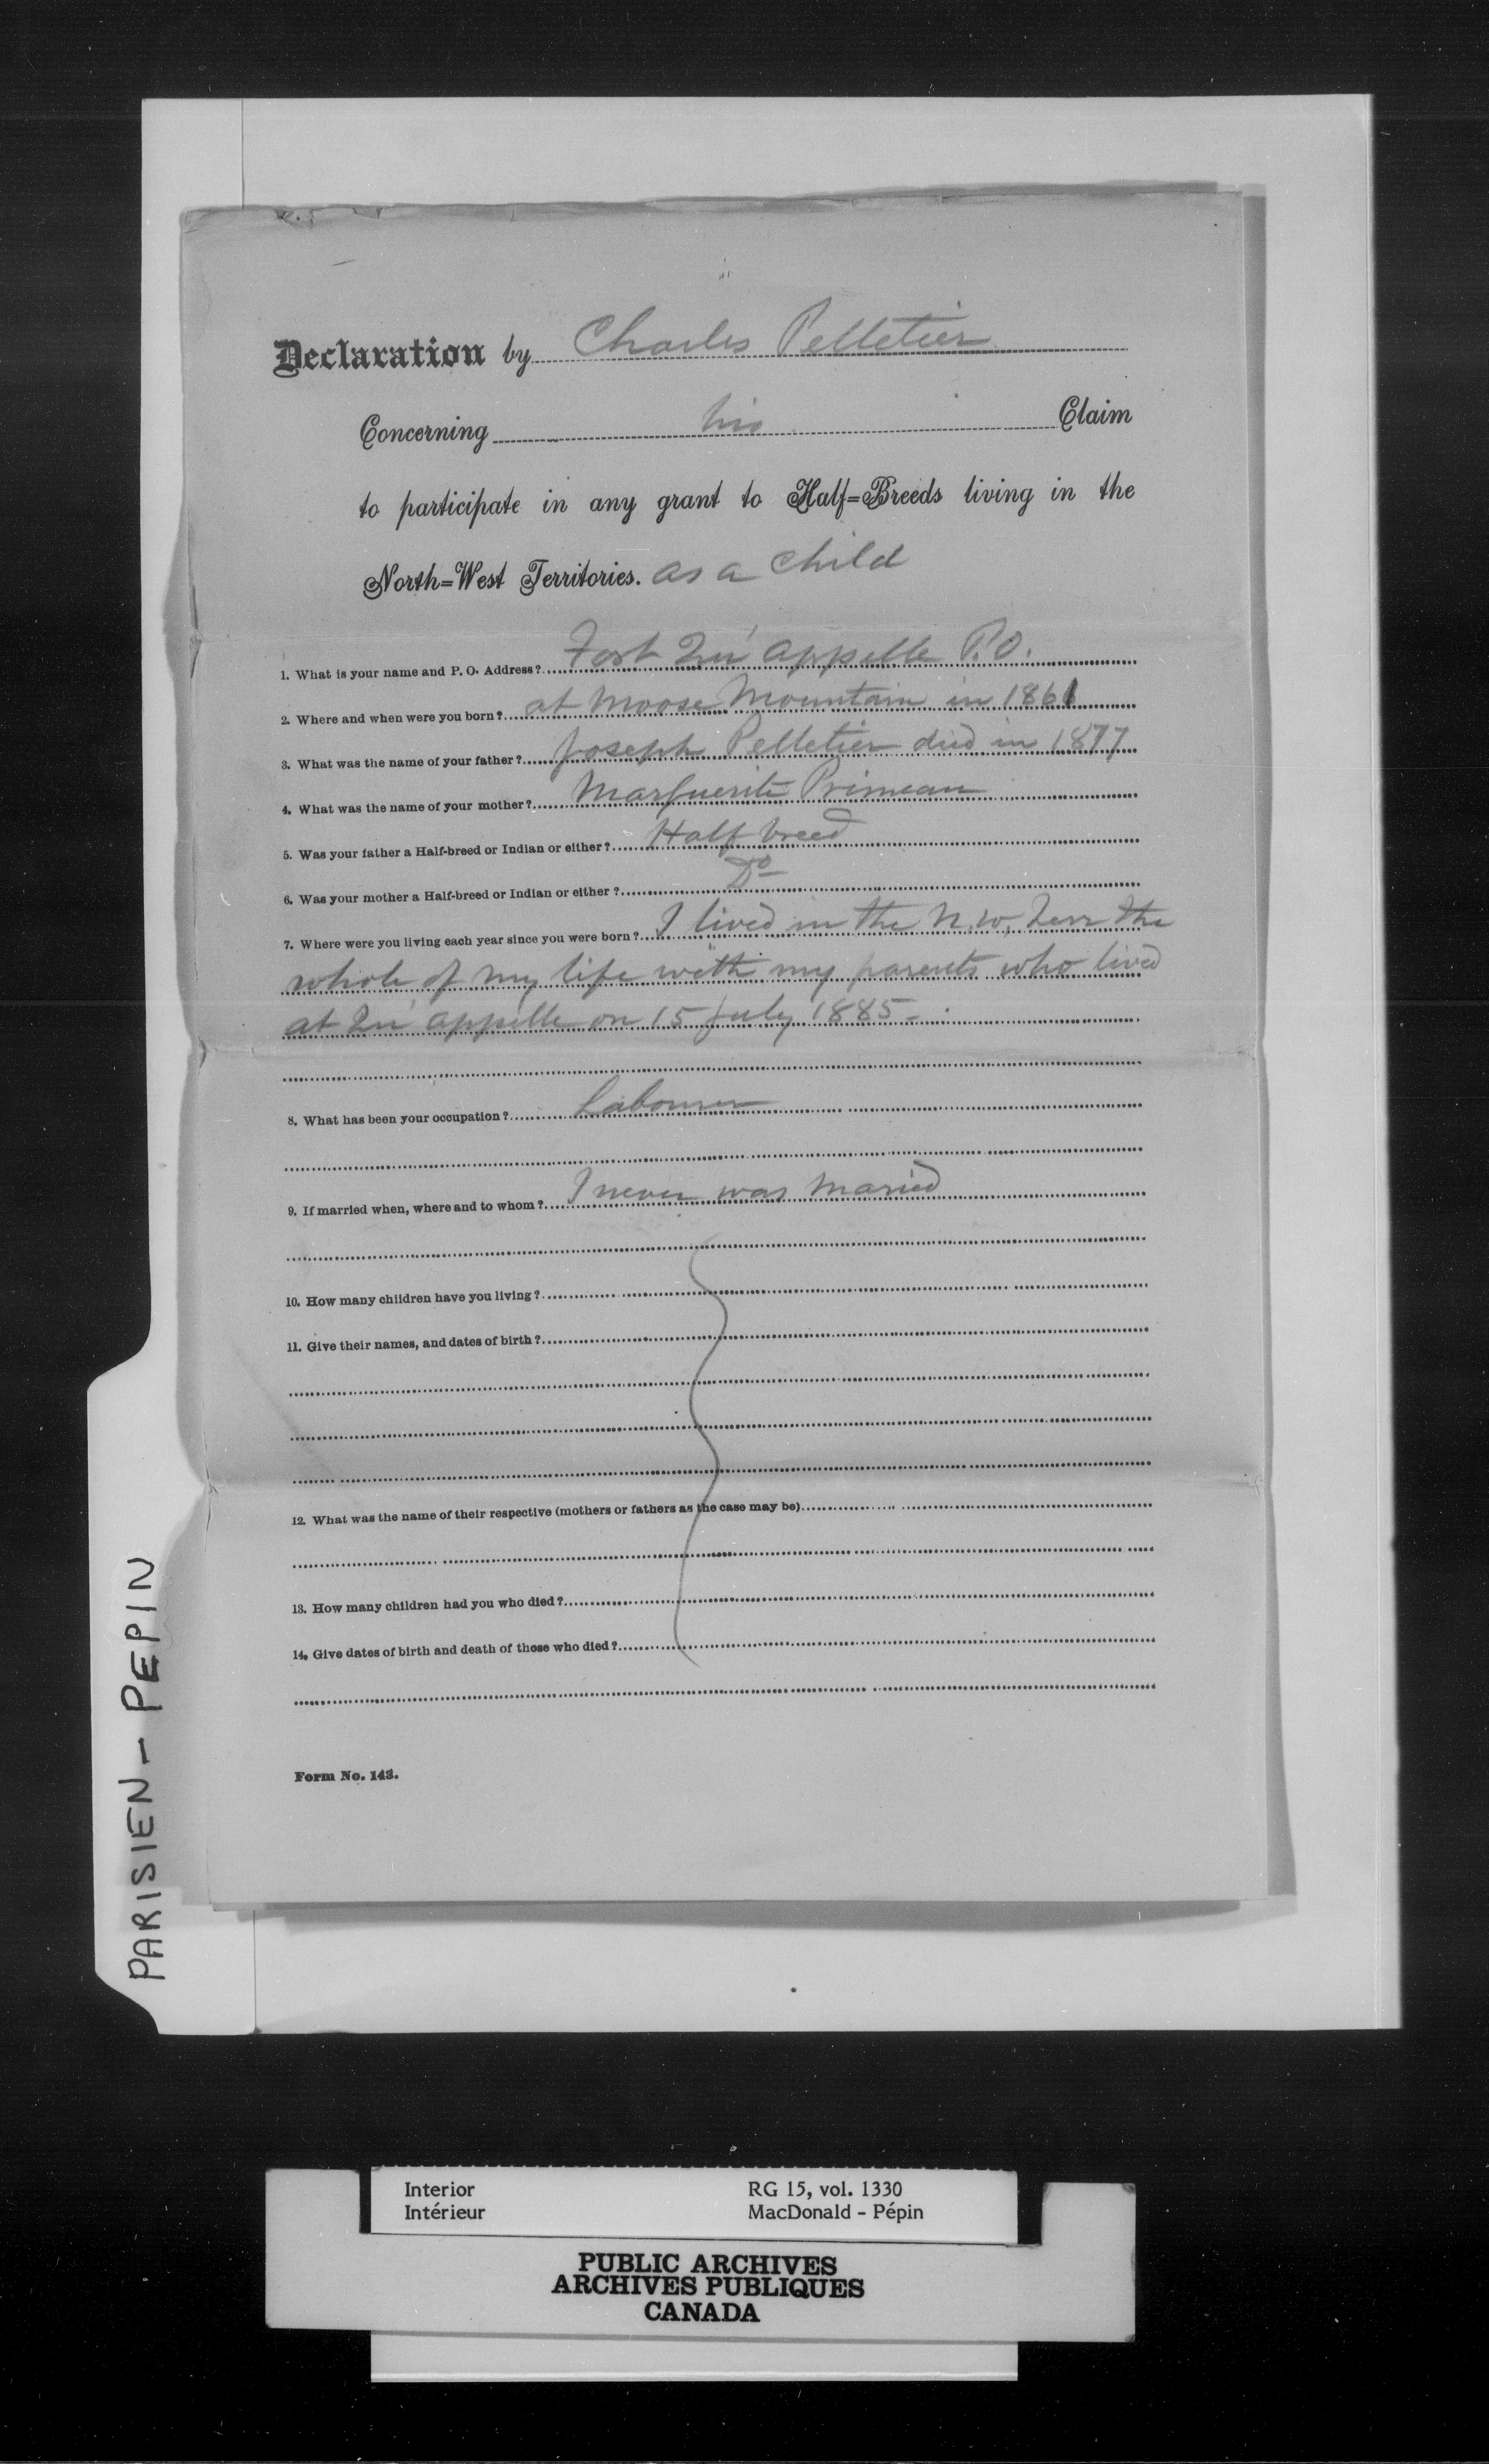 Declaration by Charles Pelletier
Concerning his Claim
to participate in any grant to Half=Breeds living in the
North=West Territories. as a child
1. What is your name and P. O. Address? Fort Qu'appelle P.O.
2. Where and when were you born? at Moose Mountain in 1861
3. What was the name of your father? Joseph Pelletier died in 1877
4. What was the name of your mother? Marguerite Primeau
5. Was your father a Half-breed or Indian or either? Half breed
6. Was your mother a Half-breed or Indian or either? Do
7. Where were you living each year since you were born? I lived in the N.W. Terr the
whole of my life with my parents who lived
at Qu'appelle on 15 July 1885 -
8. What has been your occupation? Labourer
9. If married when, where and to whom? I never was maried
10. How many children have you living?
11. Give their names, and dates of birth?
12. What was the name of their respective (mothers or fathers as the case may be)
13. How many children had you who died?
14. Give dates of birth and death of those who died?
Form No. 143.
PARISIEN - PEPIN
Interior RG 15, vol. 1330
Intérieur MacDonald - Pépin
PUBLIC ARCHIVES
ARCHIVES PUBLIQUES
CANADA